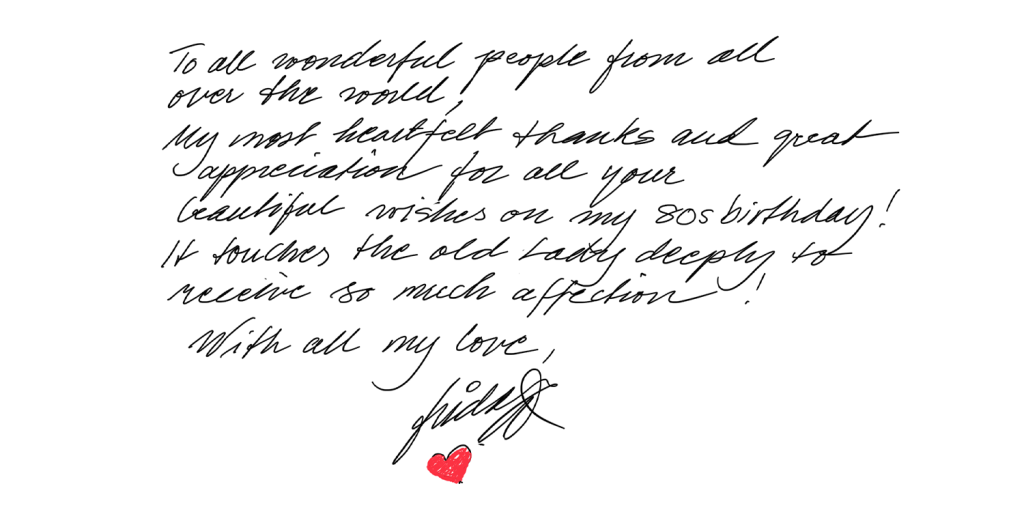 To all wonderful people from all
over the world,
My most heartfelt thanks and great
appreciation for all your
beautiful wishes on my 80s birthday!
It touches the old Lady deeply to
receive so much affection!
With all my love,
frida